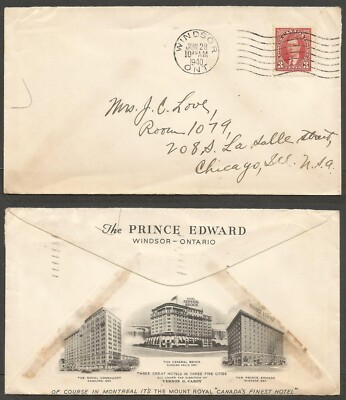 WINDSOR
JUN 28
10 AM
1940
ONT.
CANADA
3 3
Mrs. J. C. Love,
Room 1079,
208 S. La Salle Street,
Chicago, Ill. U.S.A.
The PRINCE EDWARD
WINDSOR – ONTARIO
THE ROYAL CONNAUGHT
HAMILTON, ONT.
THE GENERAL BROCK
NIAGARA FALLS, ONT.
THE PRINCE EDWARD
WINDSOR, ONT.
THREE GREAT HOTELS IN THREE FINE CITIES
ALL UNDER THE DIRECTION OF
VERNON G. CARDY
OF COURSE IN MONTREAL ITS THE MOUNT ROYAL "CANADA'S FINEST HOTEL"